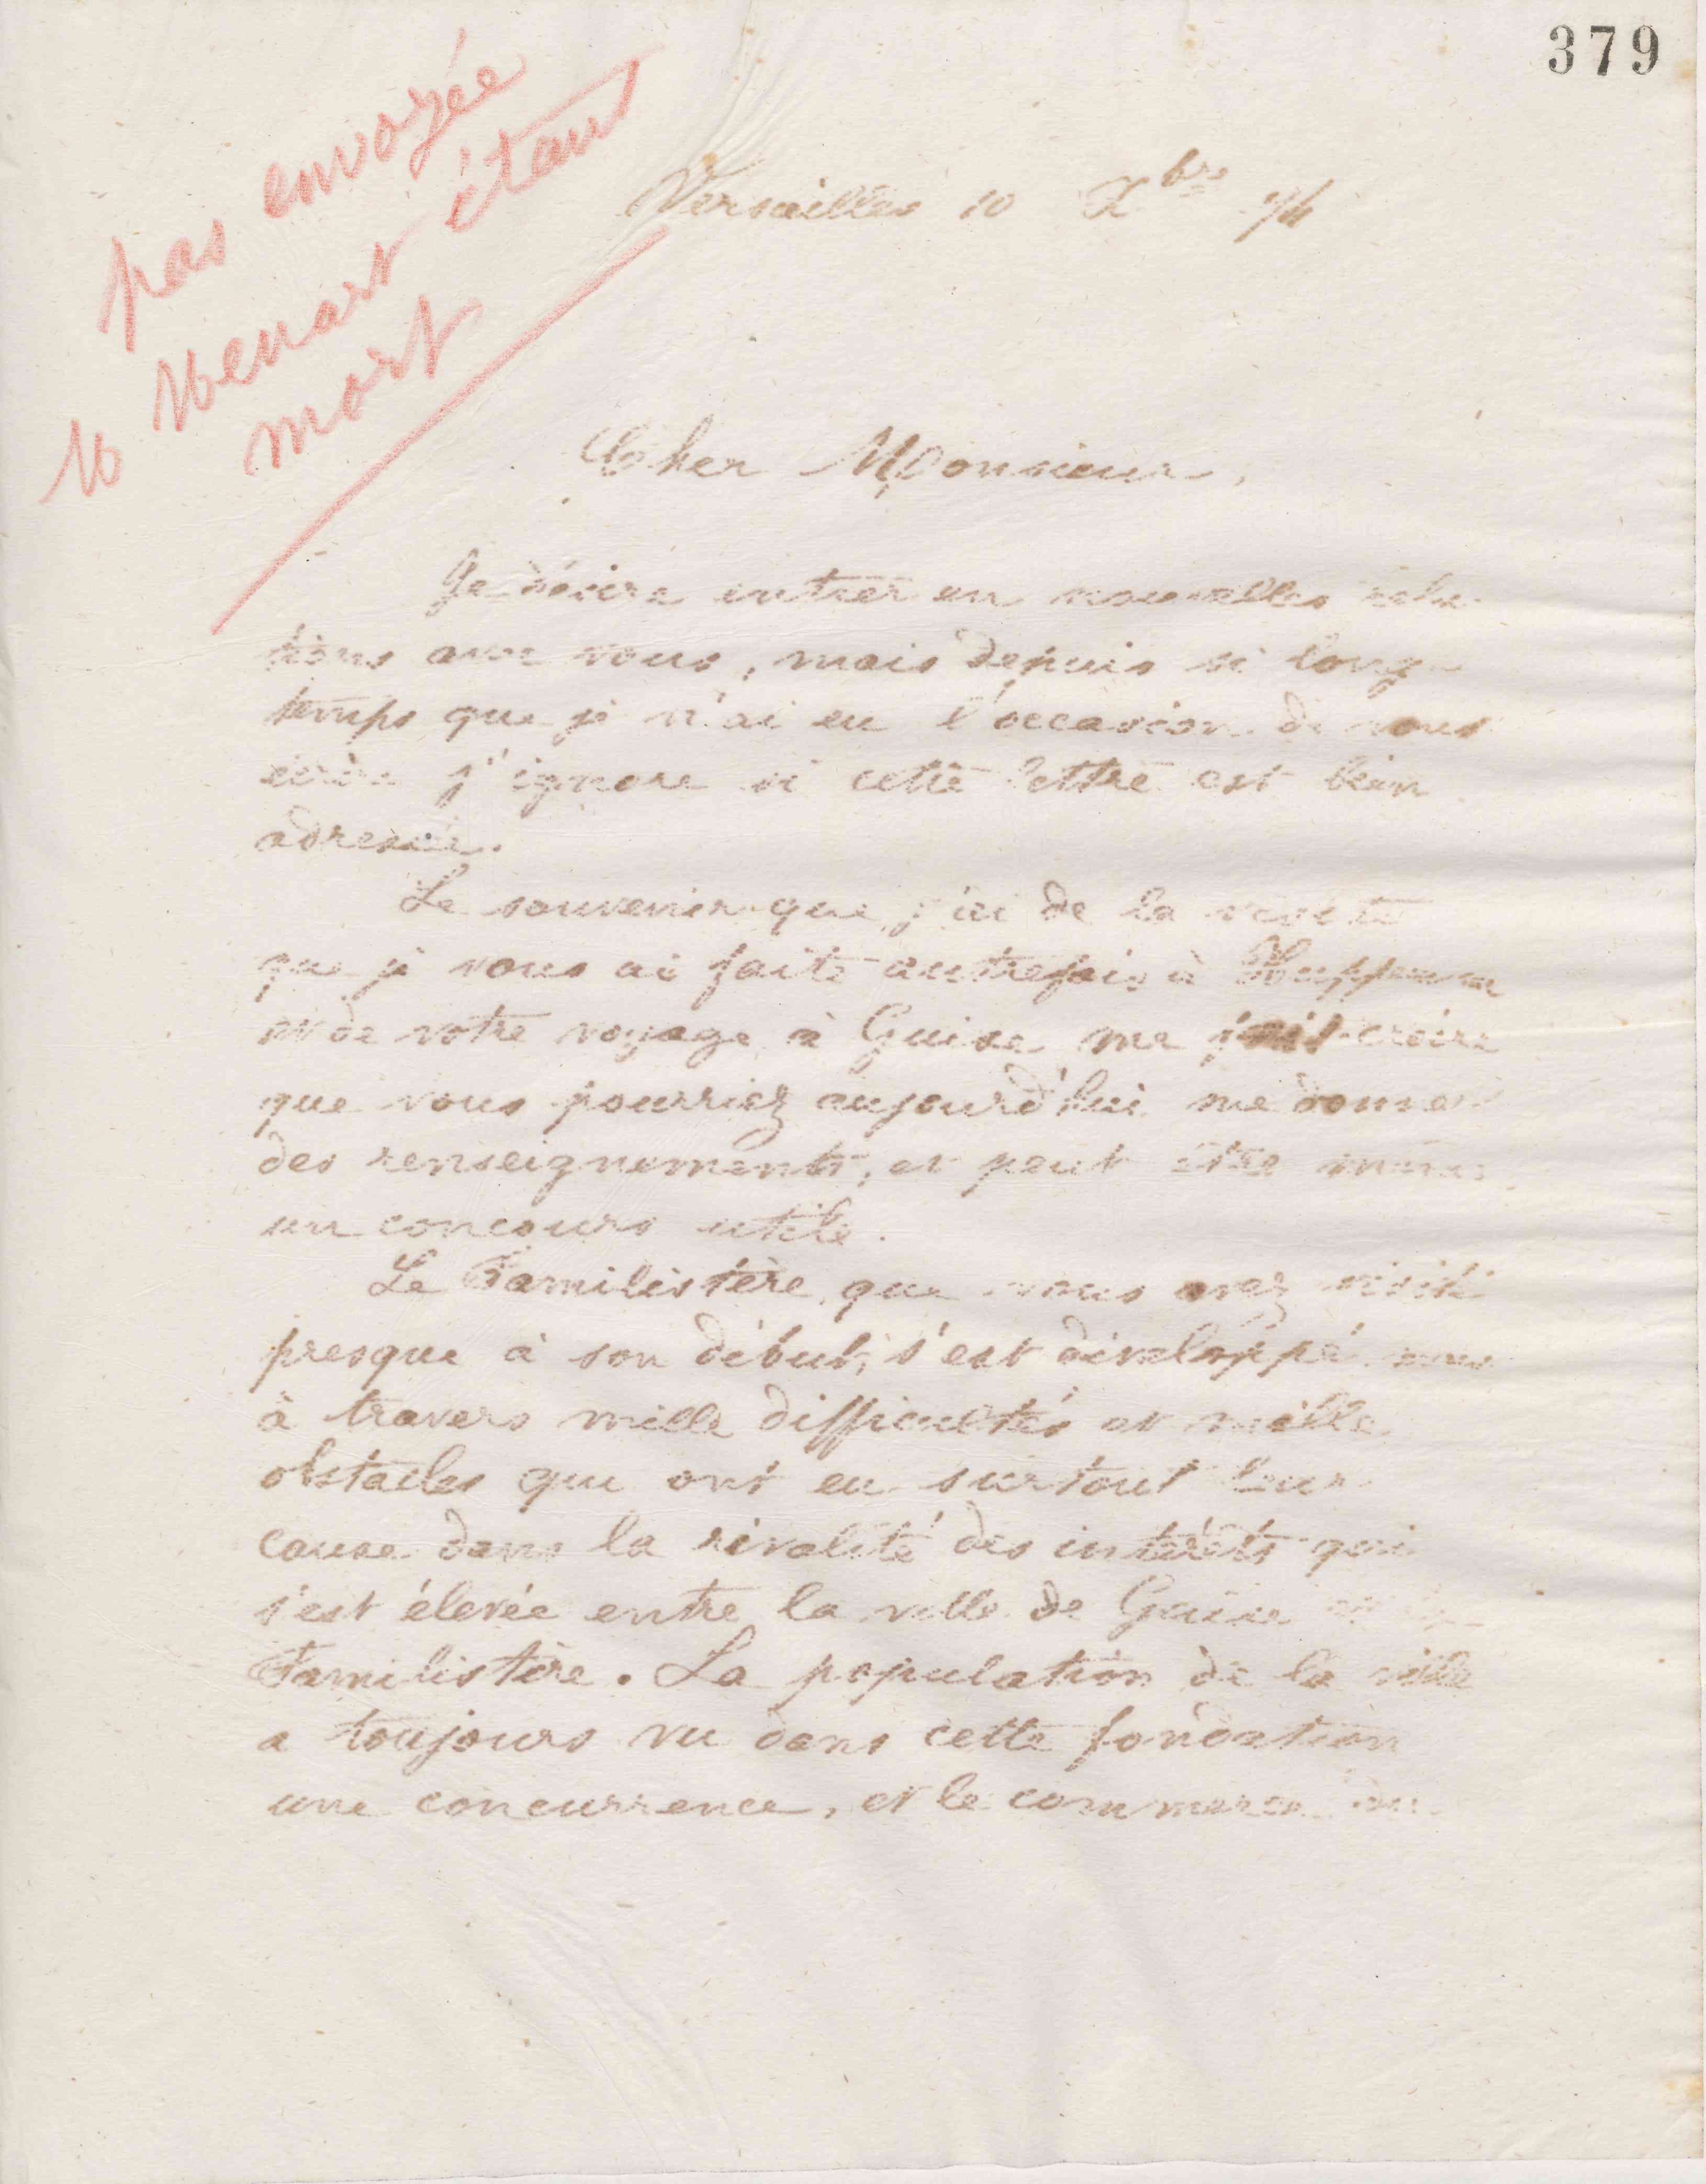 379
pas envoyée
M Menart étant
mort
Versailles 10 Xbre 74
Cher Monsieur,
Je désire entrer en nouvelles rela-
tions avec vous, mais depuis si long-
temps que je n'ai eu l'occasion de vous
écrire j'ignore si cette lettre est bien
adressée.
Le souvenir que j'ai de la visite
que je vous ai faite autrefois à
et de votre voyage à Guise me fait croire
que vous pourriez aujourd'hui me donner
des renseignements, et peut être même
un concours utile.
Le Familistère que vous avez visité
presque à son début, s'est développé mais
à travers mille difficultés et mille
obstacles qui ont eu surtout leur
cause dans la rivalité des intérêts qui
s'est élevée entre la ville de Guise et le
Familistère. La population de la ville
a toujours vu dans cette fondation
une concurrence, et le commerce du